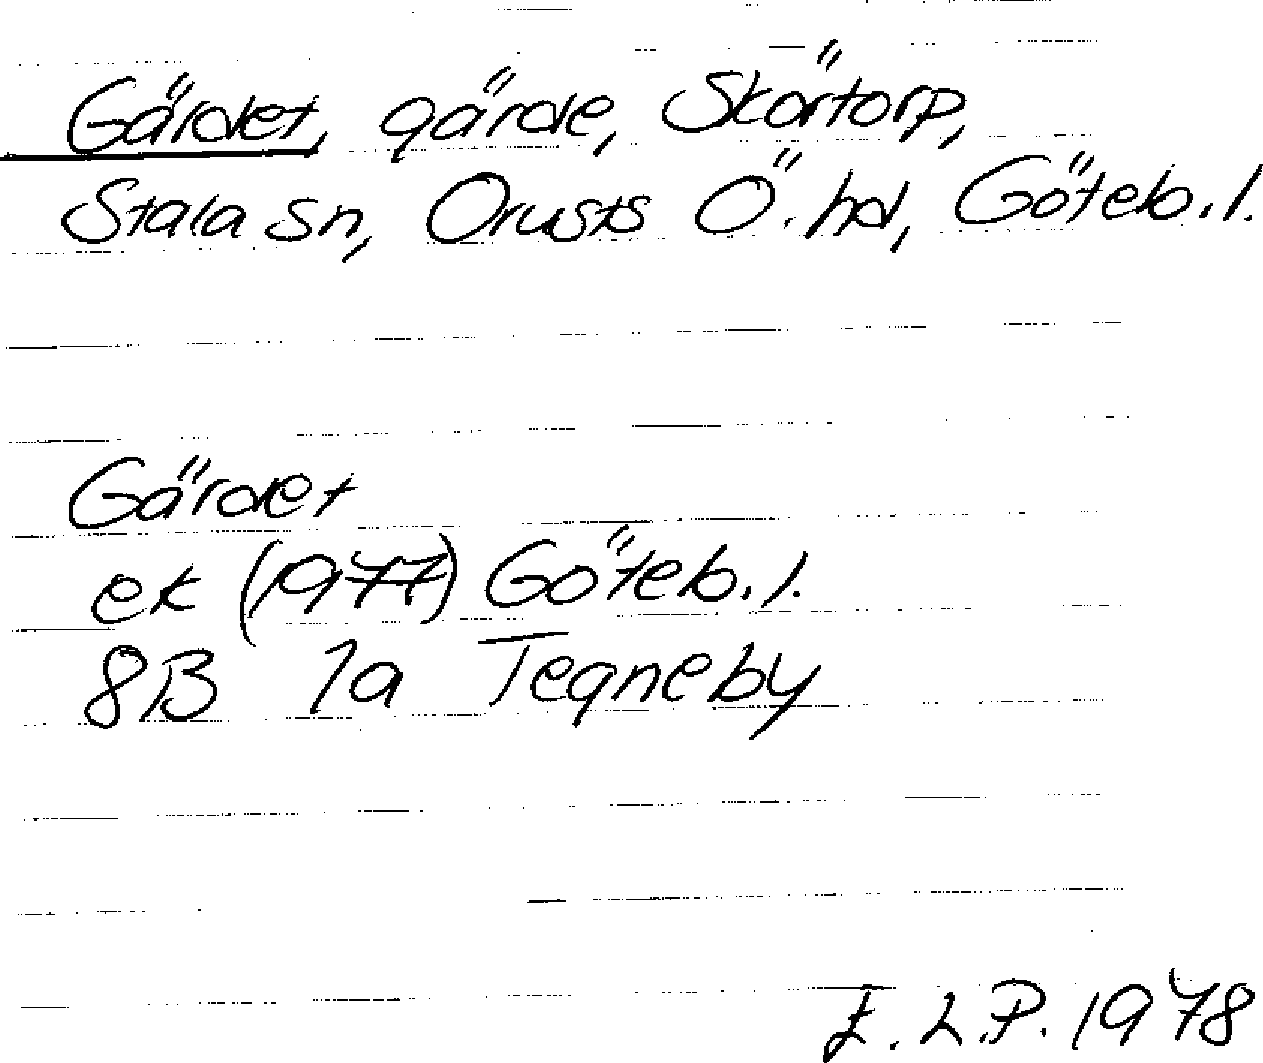 Gärdet, gärde, Skörtorp,
Stala sn, Orusts Ö. hd, Göteb. l.
Gärdet
ek (1977) Göteb. l.
8B 1a Tegneby
E. L. P. 1978